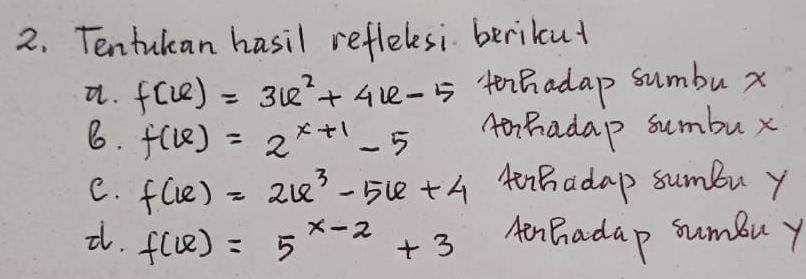 2. Tentukan hasil refleksi berikut
a. f(x) = 3x² + 4x - 5 terhadap sumbu x
b. f(x) = 2^(x+1) - 5 terhadap sumbu x
c. f(x) = 2x³ - 5x + 4 terhadap sumbu y
d. f(x) = 5^(x-2) + 3 terhadap sumbu y